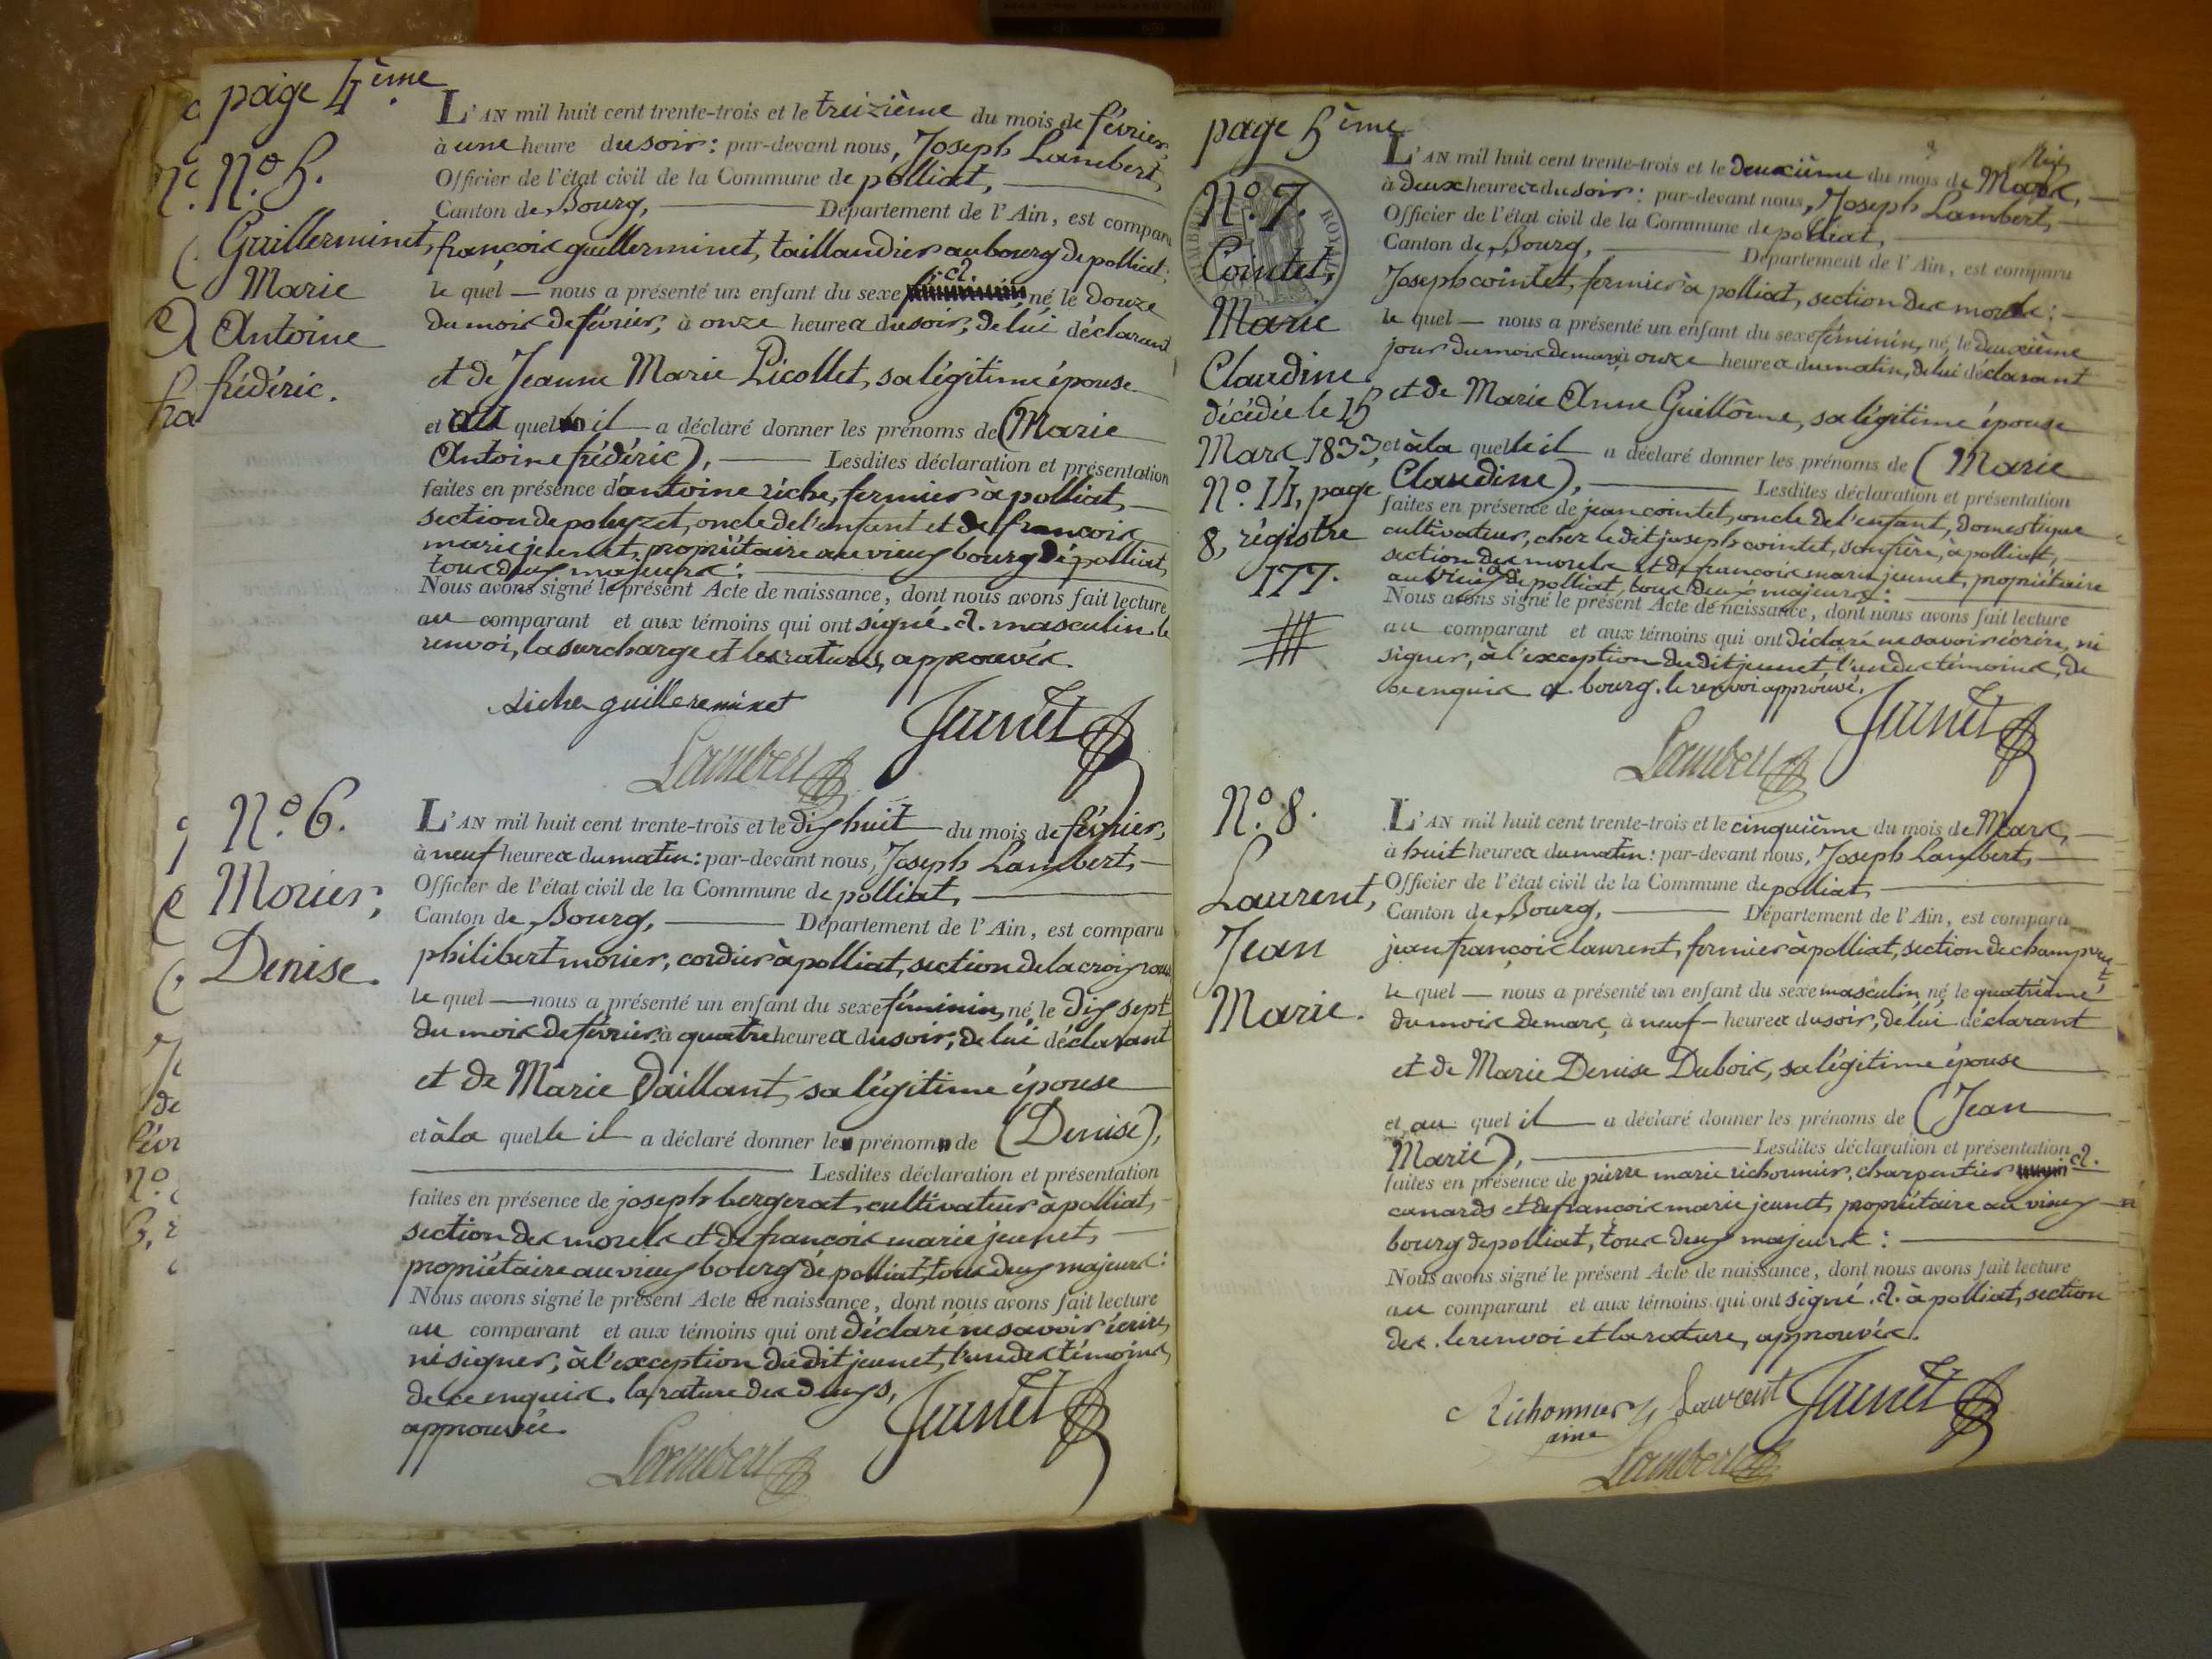 page 4ème
N.º 5.
Guillerminet,
Marie
Antoine
frédéric.
L'AN mil huit cent trente-trois et le treizième du mois de février,
à une heure du soir: par-devant nous, Joseph Lambert,
Officier de l'état civil de la Commune de polliat,
Canton de Bourg, Département de l'Ain, est comparu
françois guillerminet, taillandier au bourg de polliat;
le quel nous a présenté un enfant du sexe né le douze
du mois de février, à onze heures du soir, de lui déclarant
et de Jeanne Marie Picollet, sa légitime épouse
et au quel il a déclaré donner les prénoms de (Marie
Antoine frédéric), Lesdites déclaration et présentation
faites en présence d'antoine riche, fermier à polliat,
section de polyzet, oncle de l'enfant et de françois
marie jeunet, propriétaire au vieux bourg de polliat,
tous deux majeurs:
Nous avons signé le présent Acte de naissance, dont nous avons fait lecture
au comparant et aux témoins qui ont signé. masculin. le
renvoi, la surcharge et les ratures, approuvés.
riche guillereminet Jeunet
Lambert
N.º 6.
Morier,
Denise.
L'AN mil huit cent trente-trois et le dix huit du mois de février,
à neuf heures du matin: par-devant nous, Joseph Lambert,
Officier de l'état civil de la Commune de polliat,
Canton de Bourg, Département de l'Ain, est comparu
philibert morier, cordier à polliat, section de la croix
le quel nous a présenté un enfant du sexe féminin, né le dix sept
du mois de février à quatre heures du soir, de lui déclarant
et de Marie Vaillant, sa légitime épouse
et à la quelle il a déclaré donner le prénom de (Denise),
Lesdites déclaration et présentation
faites en présence de joseph bergerat, cultivateur à polliat,
section des morels et de françois marie jeunet,
propriétaire au vieux bourg de polliat, tous deux majeurs:
Nous avons signé le présent Acte de naissance, dont nous avons fait lecture
au comparant et aux témoins qui ont déclaré ne savoir écrire,
ni signer, à l'exception du dit jeunet, l'un des témoins,
de ce enquis. la rature des deux s,
approuvée.
Jeunet
Lambert
page 5ème
N.º 7.
Cointet,
Marie
Claudine
décédée le 15
Mars 1833,
N.º 14, page
8, régistre
177.
TIMBRE ROYAL
L'AN mil huit cent trente-trois et le deuxième du mois de Mars,
à deux heures du soir: par-devant nous, Joseph Lambert,
Officier de l'état civil de la Commune de polliat,
Canton de Bourg, Département de l'Ain, est comparu
Joseph cointet, fermier à polliat, section des morels;
le quel nous a présenté un enfant du sexe féminin, né le deuxième
jour du mois de mars, à onze heures du matin, de lui déclarant
et de Marie Anne Guillôme, sa légitime épouse
et à la quelle il a déclaré donner les prénoms de (Marie
Claudine), Lesdites déclaration et présentation
faites en présence de jean cointet, oncle de l'enfant, domestique
cultivateur, chez le dit joseph cointet, son frère, à polliat,
section des morels et de françois marie jeunet, propriétaire
au vieux de polliat, tous deux majeurs:
Nous avons signé le présent Acte de naissance, dont nous avons fait lecture
au comparant et aux témoins qui ont déclaré ne savoir écrire, ni
signer, à l'exception du dit jeunet, l'un des témoins, de
ce enquis. bourg. le renvoi approuvé.
Jeunet
Lambert
N.º 8.
Laurent,
Jean
Marie.
L'AN mil huit cent trente-trois et le cinquième du mois de Mars,
à huit heures du matin: par-devant nous, Joseph Lambert,
Officier de l'état civil de la Commune de polliat,
Canton de Bourg, Département de l'Ain, est comparu
jean françois laurent, fermier à polliat, section de
le quel nous a présenté un enfant du sexe masculin, né le quatrième
du mois de mars, à neuf heures du soir, de lui déclarant
et de Marie Denise Dubois, sa légitime épouse
et au quel il a déclaré donner les prénoms de (Jean
Marie), Lesdites déclaration et présentation
faites en présence de pierre marie richonnier, charpentier
canards et de françois marie jeunet, propriétaire au vieux
bourg de polliat, tous deux majeurs:
Nous avons signé le présent Acte de naissance, dont nous avons fait lecture
au comparant et aux témoins qui ont signé. à polliat, section
des. le renvoi et la rature, approuvés.
Richonnier Laurent Jeunet
Lambert